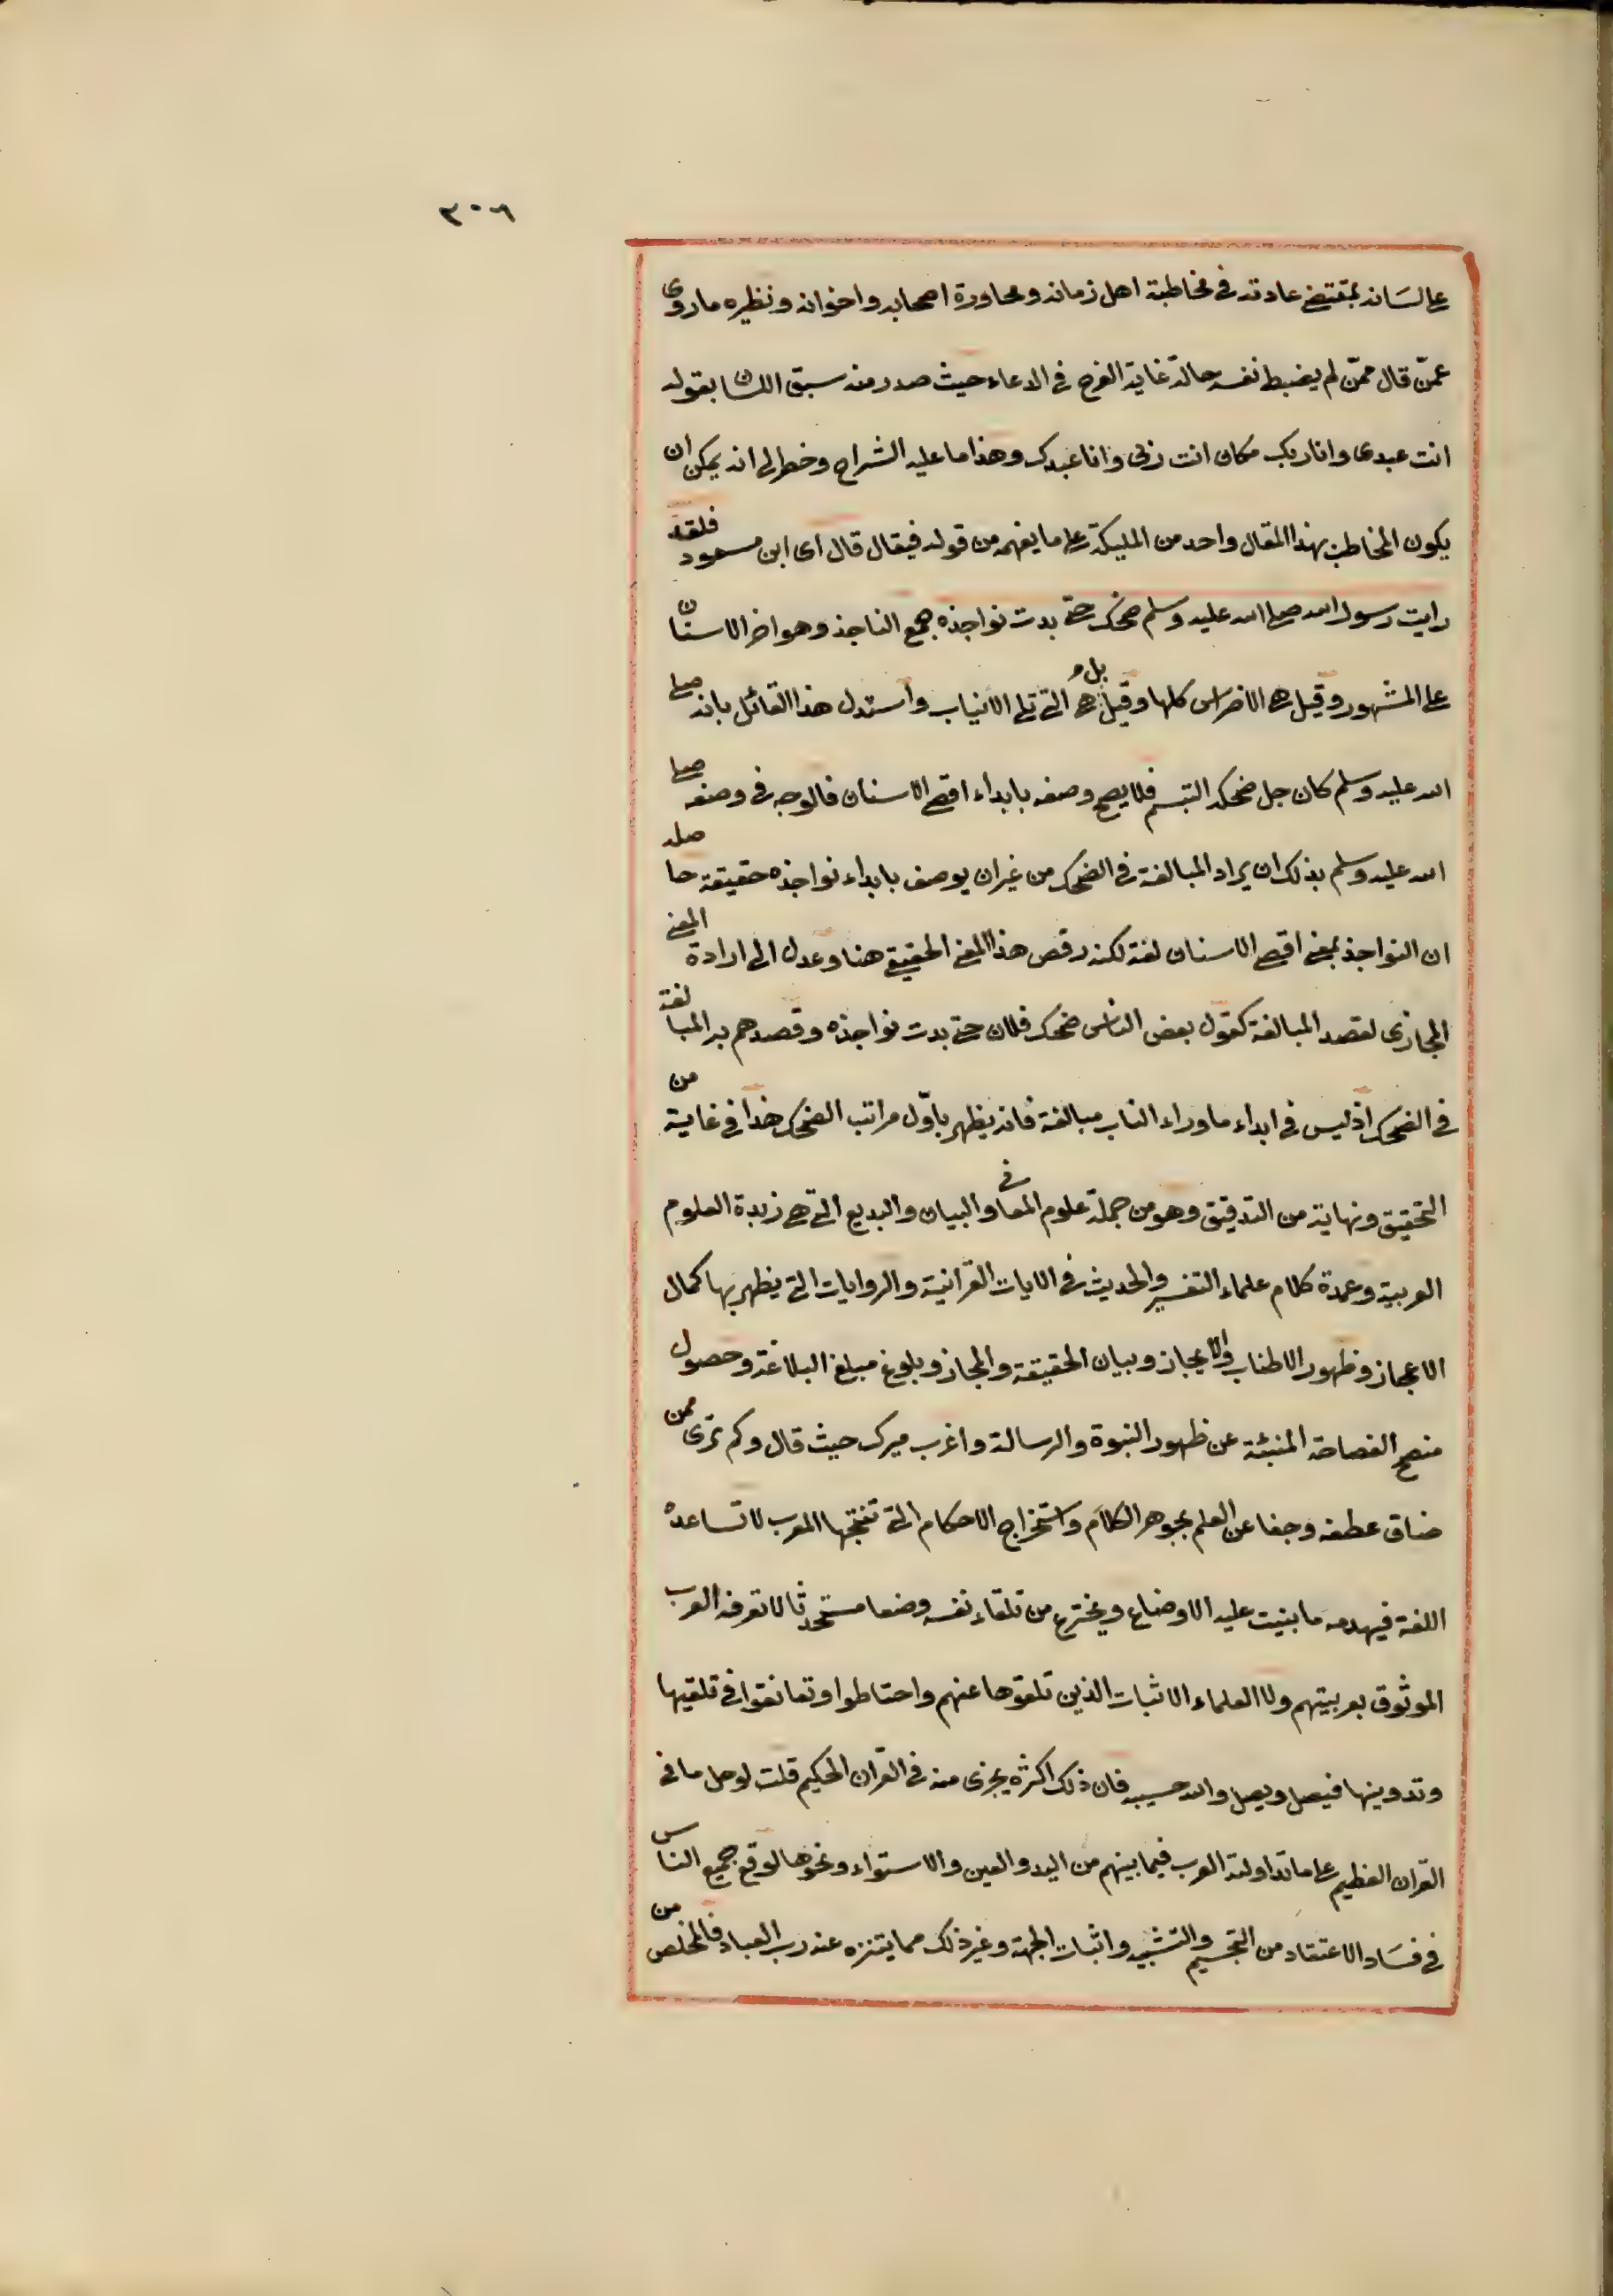 ٣٠٦
على لسانه بمقتضى عادته في مخاطبة اهل زمانه ومحاورة اصحابه واخوانه ونظيره ما روى
عمّن قال ممّن لم يضبط نفسه حالة غاية الفرح في الدعاء حيث صدر منه سبق اللسان بقوله
انت عبدى وانا ربك مكان انت ربى وانا عبدك وهذا ما عليه الشراح وخطر لى انه يمكن ان
يكون المخاطب بهذا المقال واحد من المليكة على ما يفهم من قوله فيقال قال اى ابن مسعود فلقد
رايت رسول الله صلى الله عليه وسلم ضحك حتى بدت نواجذه جمع الناجذ وهو اخر الاسنان
على المشهور وقيل هى الاضراس كلها وقيل بل هى التى تلى الانياب واستدل هذا القائل بانه صلى
الله عليه وسلم كان جل ضحكه التبسم فلا يصح وصفه بابداء اقصى الاسنان فالوجه فى وصفه صلى
الله عليه وسلم بذلك ان يراد المبالغة فى الضحك من غير ان يوصف بابداء نواجذه حقيقة حاصله
ان النواجذ بمعنى اقصى الاسنان لغة لكنه رفض هذا المعنى الحقيقى هنا وعدل الى ارادة المعنى
المجازى لقصد المبالغة كقول بعض الناس ضحك فلان حتى بدت نواجذه وقصدهم به المبالغة
فى الضحك اذ ليس فى ابداء ما وراء الناب مبالغة فانه يظهر باوّل مراتب الضحك هذا فى غاية من
التحقيق ونهاية من التدقيق وهو من جملة علوم المعانى والبيان والبديع التى هى زبدة العلوم
العربية وعمدة كلام علماء التفسير والحديث فى الايات القرانية والروايات التى يظهر بها كمال
الاعجاز وظهور الاطناب والايجاز وبيان الحقيقة والمجاز وبلوغ مبلغ البلاغة وحصول
منصح الفصاحة المنبئة عن ظهور النبوة والرسالة واغرب ميرك حيث قال وكم ترى ممن
ضاق عطفه وجفا عن العلم بجوهر الكلام واستخراج الاحكام التى تنتجها العرب لا تساعده
اللغة فيهدمه ما بنيت عليه الاوضاع ويخترع من تلقاء نفسه وضعا مستحدثا لا تعرفه العرب
الموثوق بعربيتهم ولا العلماء الاثبات الذين تلقوها عنهم واحتاطوا وتعانقوا فى تلقيها
وتدوينها فيضل ويضل والله حسيبه فان ذلك اكثره يجرى منه فى القران الحكيم قلت لو حمل ما فى
القران العظيم على ما تداولته العرب فيما بينهم من اليد والعين والاستواء ونحوها لوقع جميع الناس
فى فساد الاعتقاد من التجسيم والتشبيه واثبات الجهة وغير ذلك مما يتنزه عنه رب العباد فالمخلص من